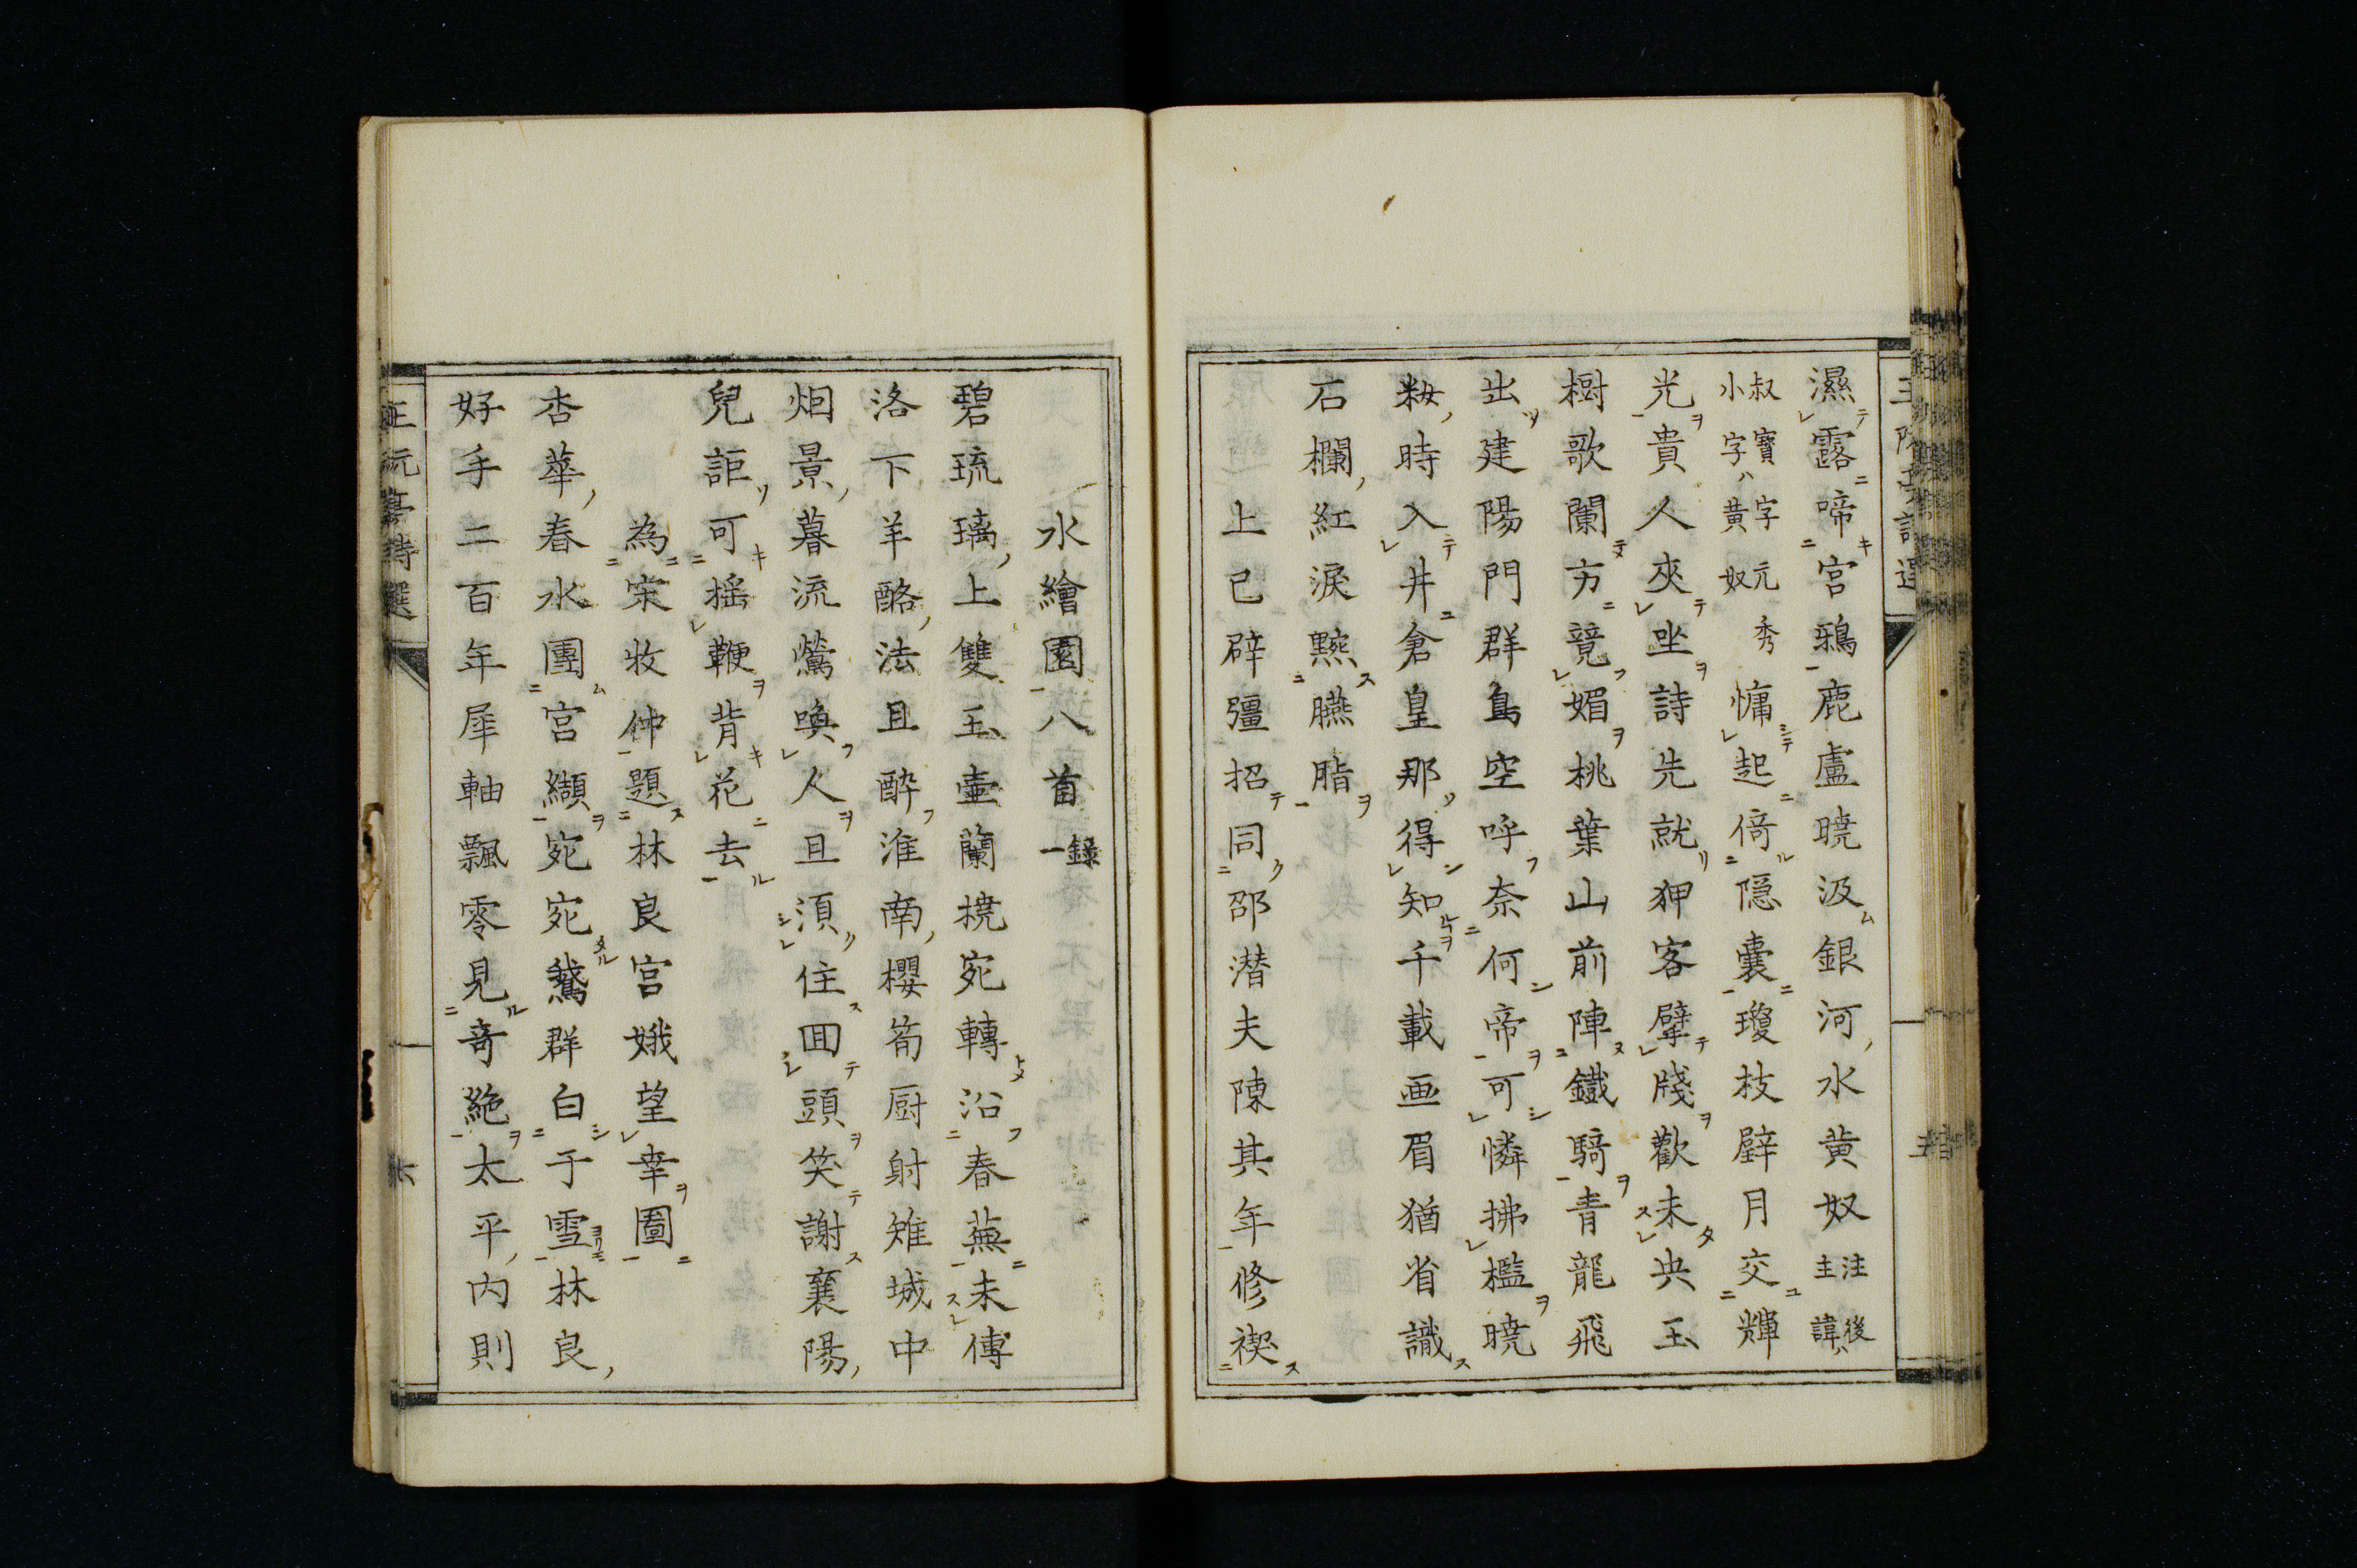 濕露啼宮鴉鹿盧曉汲銀河水黃奴注後主諱
叔寶字元秀小字ハ黄奴慵起倚隠囊瓊枝璧月交輝
光貴人夾坐詩先就狎客擘牋歡未央玉
樹歌闌方競媚桃葉山前陣鐵騎青龍飛
出建陽門群鳥空呼奈何帝可憐拂檻曉
粧時入井倉皇那得知千載画眉猶省識
石欄紅淚黦臙脂
上巳辟彊招同邵潜夫陳其年修禊
水繪園八首錄一
碧琉璃上雙玉壷蘭橈宛轉沿春蕪未傳
洛下羊酪法且酔淮南櫻筍厨射雉城中
烟景暮流鶯喚人且須住回頭笑謝襄陽
兒詎可揺鞭背花去
為宋牧仲題林良宮娥望幸圖
杏華春水團宮纈宛宛鵞群白于雪林良
好手二百年犀軸飄零見奇絶太平内則
王阮亭詩選
六